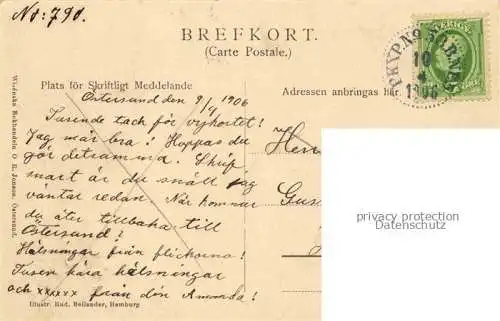 No: 790.
BREFKORT.
(Carte Postale.)
SVERIGE
PKXP. No 2
10
4
1906
Plats för Skriftligt Meddelande
Adressen anbringas här
Östersund den 9/4 1906
Tusende tack för vykortet!
Jag mår bra! Hoppas du
gör detsamma. Skrif
snart är du snäll jag
väntar redan. När kommer
du åter tillbaka till
Östersund?
Hälsningar från flickorna!
Tusen kära hälsningar
och xxxxxx från din Amanda!
Herr
Gus
privacy protection
Datenschutz
Illustr. Rud. Beilander, Hamburg
Wiednska Bokhandeln O R. Jonson. Östersund.